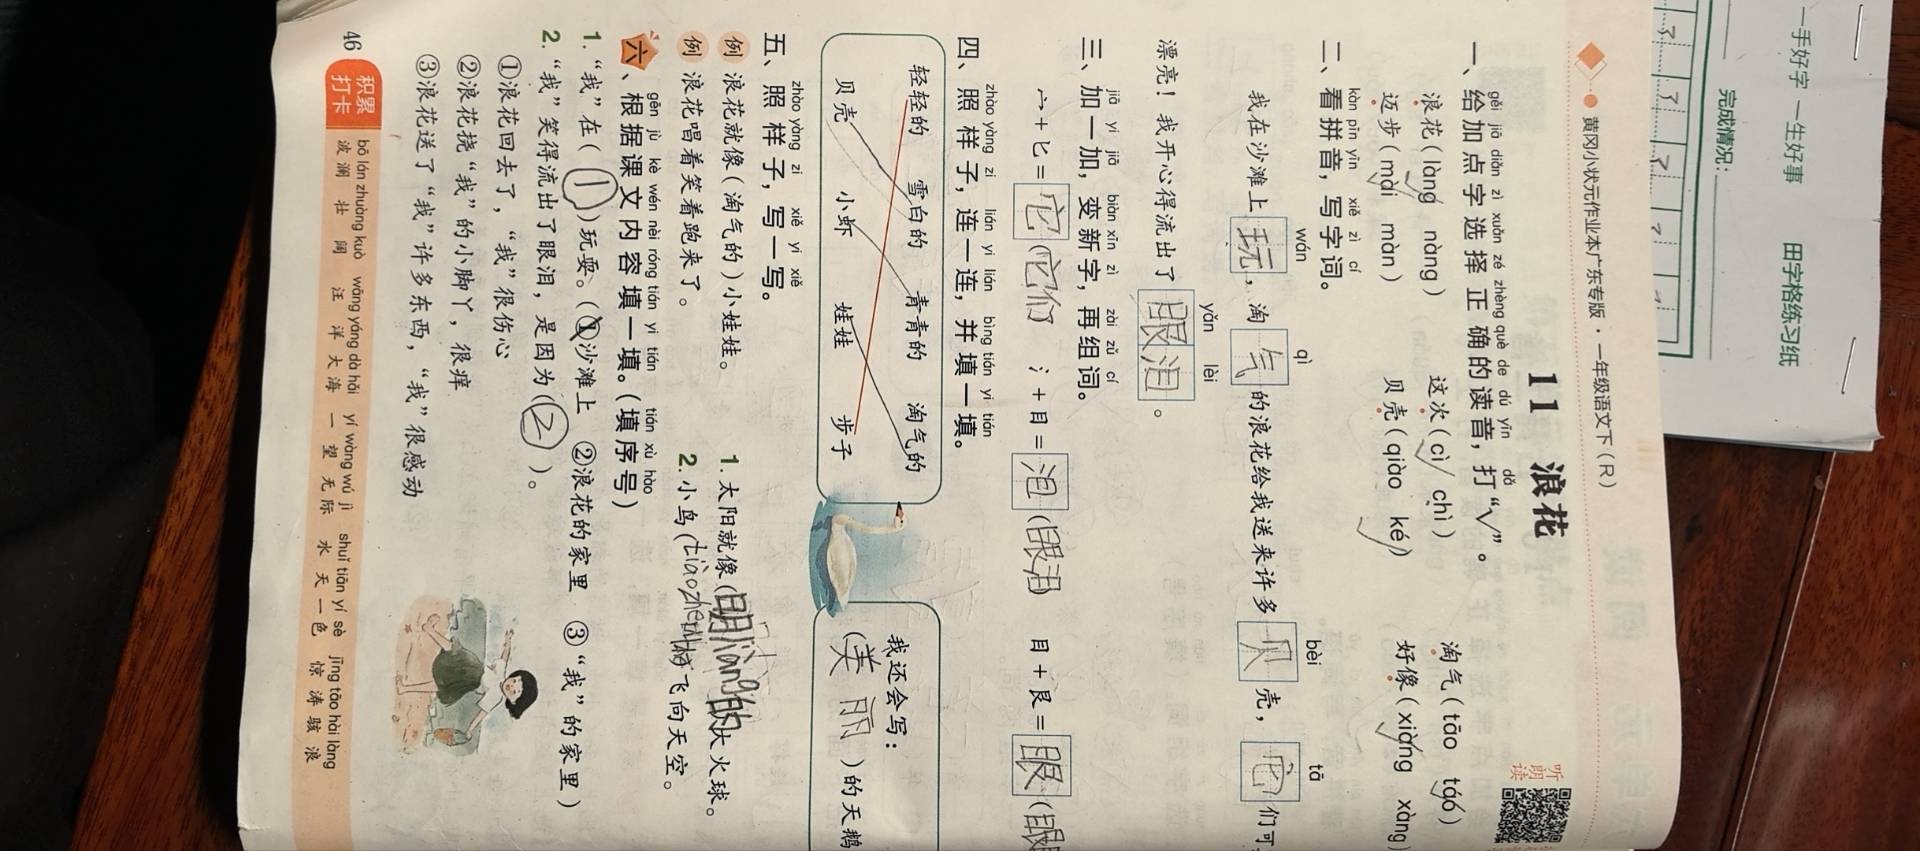 一手好字 一生好事 田字格练习纸
完成情况：
黄冈小状元作业本广东专版·一年级语文下（R）
11 浪花
听
朗
读
gěi jiā diǎn zì xuǎn zé zhèng què de dú yīn dǎ
一、给加点字选择正确的读音，打“√”。
浪花（làng√ nàng） 这次（cì√ chì） 淘气（tāo táo√）
迈步（mài√ màn） 贝壳（qiào ké√） 好像（xiàng√ xàng）
kàn pīn yīn xiě zì cí
二、看拼音，写字词。
wán qì bèi tā
我在沙滩上玩，淘气的浪花给我送来许多贝壳，它们可
yǎn lèi
漂亮！我开心得流出了眼泪。
jiā yi jiā biàn xīn zì zài zǔ cí
三、加一加，变新字，再组词。
宀＋匕＝它（它们） 氵＋目＝泪（眼泪） 目＋艮＝眼（眼
zhào yàng zi lián yi lián bìng tián yi tián
四、照样子，连一连，并填一填。
轻轻的 雪白的 青青的 淘气的
贝壳 小虾 娃娃 步子
我还会写：
（美丽）的天鹅
zhào yàng zi xiě yi xiě
五、照样子，写一写。
例 浪花就像（淘气的）小娃娃。
1. 太阳就像（明liàng的）大火球。
例 浪花唱着笑着跑来了。
2. 小鸟 飞向天空。
gēn jù kè wén nèi róng tián yi tián tián xù hào
六、根据课文内容填一填。（填序号）
1. “我”在（①）玩耍。（①沙滩上 ②浪花的家里 ③“我”的家里）
2. “我”笑得流出了眼泪，是因为（②）。
①浪花回去了，“我”很伤心
②浪花挠“我”的小脚丫，很痒
③浪花送了“我”许多东西，“我”很感动
46
积累
打卡
bō lán zhuàng kuò wāng yáng dà hǎi yí wàng wú jì shuǐ tiān yí sè jīng tāo hài làng
波澜壮阔 汪洋大海 一望无际 水天一色 惊涛骇浪